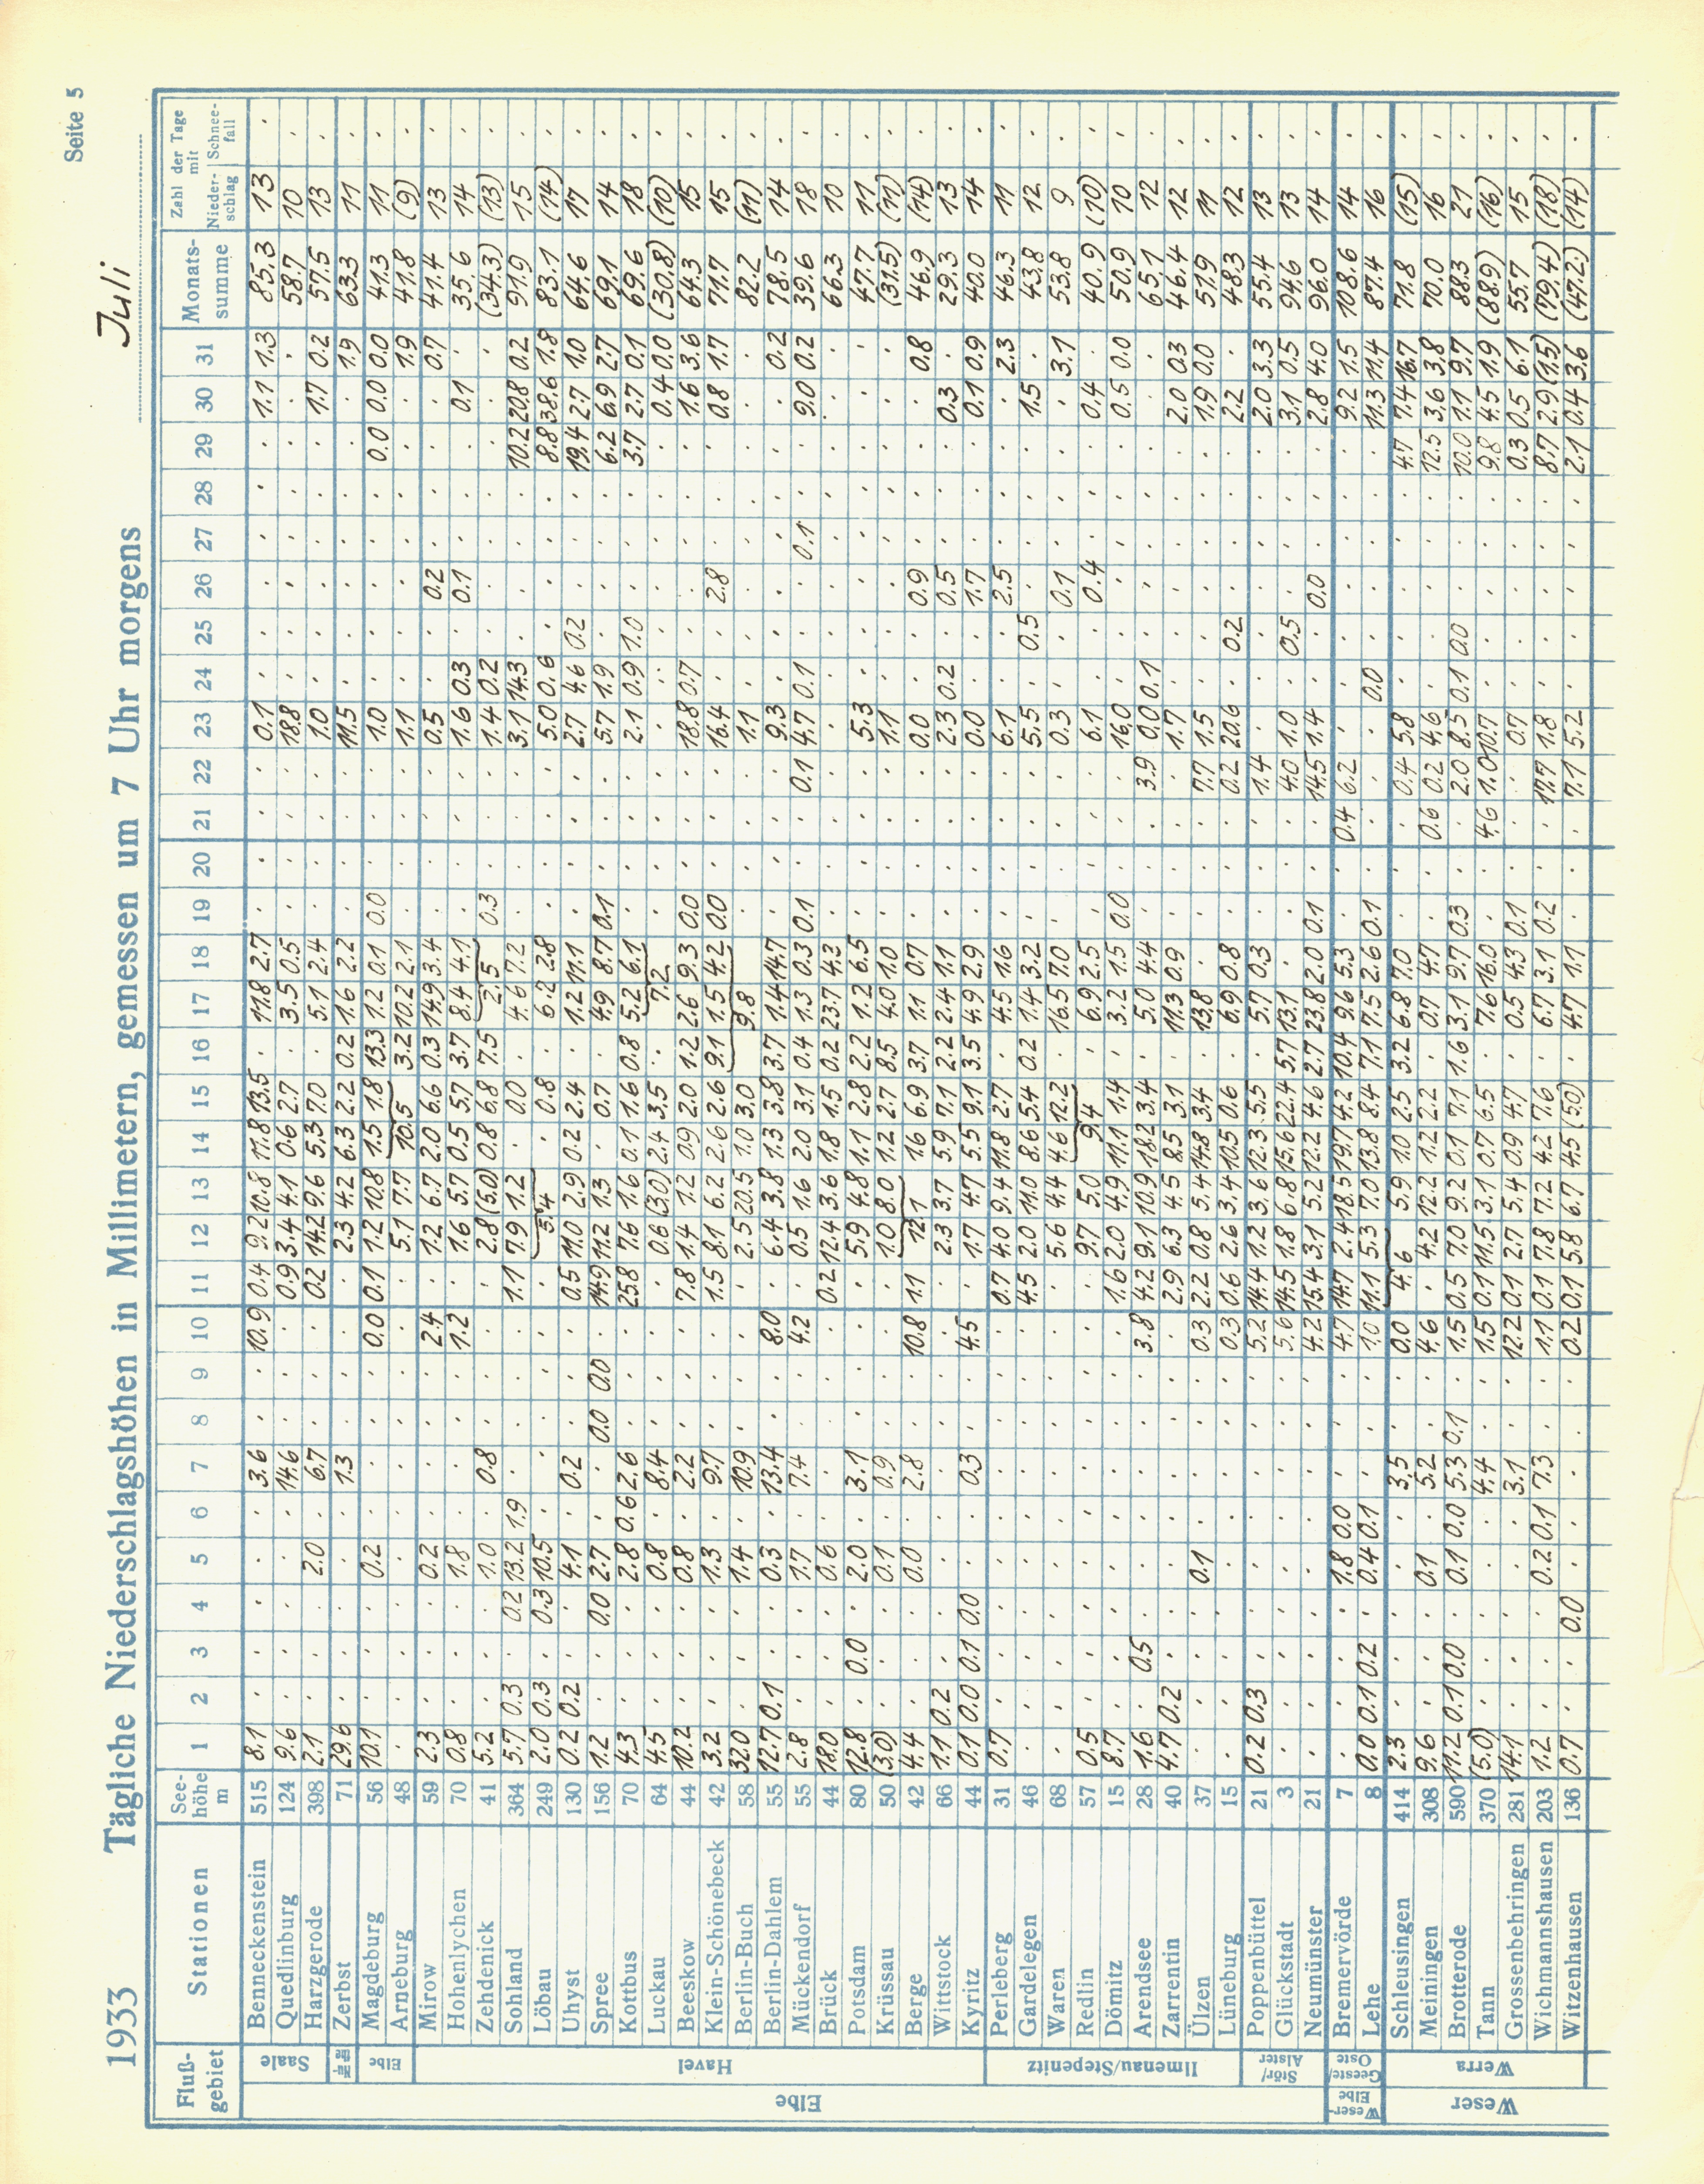 Seite 5
1933 Tägliche Niederschlagshöhen in Millimetern, gemessen um 7 Uhr morgens Juli
Fluß-gebiet Stationen See-höhe m 1 2 3 4 5 6 7 8 9 10 11 12 13 14 15 16 17 18 19 20 21 22 23 24 25 26 27 28 29 30 31 Monats-summe Zahl der Tage mit Nieder-schlag Schnee-fall
Elbe
Saale
Benneckenstein 515 8.1 3.6 10.9 0.4 9.2 10.8 11.8 13.5 11.8 2.7 0.1 1.1 1.3 85.3 13
Quedlinburg 124 9.6 14.6 0.9 3.4 4.1 0.6 2.7 3.5 0.5 18.8 58.7 10
Harzgerode 398 2.1 2.0 6.7 0.2 14.2 9.6 5.3 7.0 5.1 2.4 1.0 1.7 0.2 57.5 13
Zerbst 71 29.6 1.3 2.3 4.2 6.3 2.2 0.2 1.6 2.2 11.5 1.9 63.3 11
Elbe
Magdeburg 56 10.1 0.2 0.0 0.1 1.2 10.8 1.5 1.8 13.3 1.2 0.1 0.0 1.0 0.0 0.0 0.0 41.3 11
Arneburg 48 5.1 7.7 10.5 3.2 10.2 2.1 1.1 1.9 41.8 (9)
Havel
Mirow 59 2.3 0.2 2.4 1.2 6.7 2.0 6.6 0.3 14.9 3.4 0.5 0.2 0.7 41.4 13
Hohenlychen 70 0.8 1.8 1.2 1.6 5.7 0.5 5.7 3.7 8.4 4.1 1.6 0.3 0.1 0.1 35.6 14
Zehdenick 41 5.2 1.0 0.8 2.8 (5.0) 0.8 6.8 7.5 2.5 0.3 1.4 0.2 (34.3) (13)
Sohland 364 5.7 0.3 0.2 13.2 1.9 1.1 7.9 1.2 0.0 4.6 7.2 3.1 14.3 10.2 20.8 0.2 91.9 15
Löbau 249 2.0 0.3 0.3 10.5 3.4 0.8 6.2 2.8 5.0 0.6 8.8 38.6 1.8 83.1 (14)
Uhyst 130 0.2 0.2 4.1 0.2 0.5 11.0 2.9 0.2 2.4 1.2 11.1 2.7 4.6 0.2 19.4 2.7 1.0 64.6 17
Spree 156 1.2 0.0 2.7 0.0 0.0 14.9 11.2 1.3 0.7 4.9 8.7 0.1 5.7 1.9 6.2 6.9 2.7 69.1 14
Kottbus 70 4.3 2.8 0.6 2.6 25.8 7.6 1.6 0.1 1.6 0.8 5.2 6.1 2.1 0.9 1.0 3.7 2.7 0.1 69.6 18
Luckau 64 4.5 0.8 8.4 0.6 (3.0) 2.4 3.5 7.2 0.4 0.0 (30.8) (10)
Beeskow 44 10.2 0.8 2.2 7.8 1.4 1.2 0.9 2.0 1.2 2.6 9.3 0.0 18.8 0.7 1.6 3.6 64.3 15
Klein-Schönebeck 42 3.2 1.3 9.7 1.5 8.1 6.2 2.6 2.6 9.1 1.5 4.2 0.0 16.4 2.8 0.8 1.7 71.7 15
Berlin-Buch 58 32.0 1.4 10.9 2.5 20.5 1.0 3.0 9.8 1.1 82.2 (11)
Berlin-Dahlem 55 12.7 0.1 0.3 13.4 8.0 6.4 3.8 1.3 3.8 3.7 1.4 14.7 9.3 0.2 78.5 14
Mückendorf 55 2.8 1.7 7.4 4.2 0.5 1.6 2.0 3.1 0.4 1.3 0.3 0.1 0.1 4.7 0.1 0.1 9.0 0.2 39.6 18
Brück 44 18.0 0.6 0.2 12.4 3.6 1.8 1.5 0.2 23.7 4.3 66.3 10
Potsdam 80 12.8 0.0 2.0 3.1 5.9 4.8 1.1 2.8 2.2 1.2 6.5 5.3 47.7 11
Krüssau 50 (3.0) 0.1 0.9 1.0 8.0 1.2 2.7 8.5 4.0 1.0 1.1 (31.5) (11)
Berge 42 4.4 0.0 2.8 10.8 1.1 12.1 1.6 6.9 3.7 1.1 0.7 0.0 0.9 0.8 46.9 (14)
Wittstock 66 1.1 0.2 2.3 3.7 5.9 7.1 2.2 2.4 1.1 2.3 0.2 0.5 0.3 29.3 13
Kyritz 44 0.1 0.0 0.1 0.0 0.3 4.5 1.7 4.7 5.5 9.1 3.5 4.9 2.9 0.0 1.7 0.1 0.9 40.0 14
Ilmenau/Stepenitz
Perleberg 31 0.7 0.7 4.0 9.4 11.8 2.7 4.5 1.6 6.1 2.5 2.3 46.3 11
Gardelegen 46 4.5 2.0 11.0 8.6 5.4 0.2 1.4 3.2 5.5 0.5 1.5 43.8 12
Waren 68 5.6 4.4 4.6 12.2 16.5 7.0 0.3 0.1 3.1 53.8 9
Redlin 57 0.5 9.7 5.0 9.4 6.9 2.5 6.1 0.4 0.4 40.9 (10)
Dömitz 15 8.7 1.6 2.0 4.9 11.1 1.4 3.2 1.5 0.0 16.0 0.5 0.0 50.9 10
Arendsee 28 1.6 0.5 3.8 4.2 9.1 10.9 18.2 3.4 5.0 4.4 3.9 0.0 0.1 65.1 12
Zarrentin 40 4.7 0.2 2.9 6.3 4.5 8.5 3.1 11.3 0.9 1.7 2.0 0.3 46.4 12
Ülzen 37 0.1 0.3 2.2 0.8 5.4 14.8 3.4 13.8 7.7 1.5 1.9 0.0 51.9 11
Lüneburg 15 0.3 0.6 2.6 3.4 10.5 0.6 6.9 0.8 0.2 20.6 0.2 2.2 48.3 12
Stör/Alster
Poppenbüttel 21 0.2 0.3 5.2 14.4 1.2 3.6 12.3 5.5 5.7 0.3 1.4 2.0 3.3 55.4 13
Glückstadt 3 5.6 14.5 1.8 6.8 15.6 22.4 5.7 13.1 4.0 1.0 0.5 3.1 0.5 94.6 13
Neumünster 21 4.2 15.4 3.1 5.2 12.2 4.6 2.7 23.8 2.0 0.1 14.5 1.4 0.0 2.8 4.0 96.0 14
Weser-Elbe
Geeste/Oste
Bremervörde 7 1.8 0.0 4.7 14.7 2.4 18.5 19.7 4.2 10.4 9.6 5.3 0.4 6.2 9.2 1.5 108.6 14
Lehe 8 0.0 0.1 0.2 0.4 0.1 1.0 11.1 5.3 7.0 13.8 8.4 7.1 7.5 2.6 0.1 0.0 11.3 11.4 87.4 16
Weser
Werra
Schleusingen 414 2.3 3.5 0.0 4.6 5.9 1.0 2.5 3.2 6.8 7.0 0.4 5.8 4.7 7.4 16.7 71.8 (15)
Meiningen 308 9.6 0.1 5.2 4.6 4.2 12.2 1.2 2.2 0.7 4.7 0.6 0.2 4.6 12.5 3.6 3.8 70.0 16
Brotterode 590 11.2 0.1 0.0 0.1 0.0 5.3 0.1 1.5 0.5 7.0 9.2 0.1 7.1 1.6 3.1 9.7 0.3 2.0 8.5 0.1 0.0 10.0 1.1 9.7 88.3 21
Tann 370 (5.0) 4.4 1.5 0.1 11.5 3.1 0.7 6.5 7.6 16.0 4.6 1.0 10.7 9.8 4.5 1.9 (88.9) (16)
Grossenbehringen 281 14.1 3.1 12.2 0.1 2.7 5.4 0.9 4.7 0.5 4.3 0.1 0.7 0.3 0.5 6.1 55.7 15
Wichmannshausen 203 1.2 0.2 0.1 7.3 1.1 0.1 7.8 7.2 4.2 7.6 6.7 3.1 0.2 17.7 1.8 8.7 2.9 (1.5) (79.4) (18)
Witzenhausen 136 0.7 0.0 0.2 0.1 5.8 6.7 4.5 (5.0) 4.7 1.1 7.1 5.2 2.1 0.4 3.6 (47.2) (14)